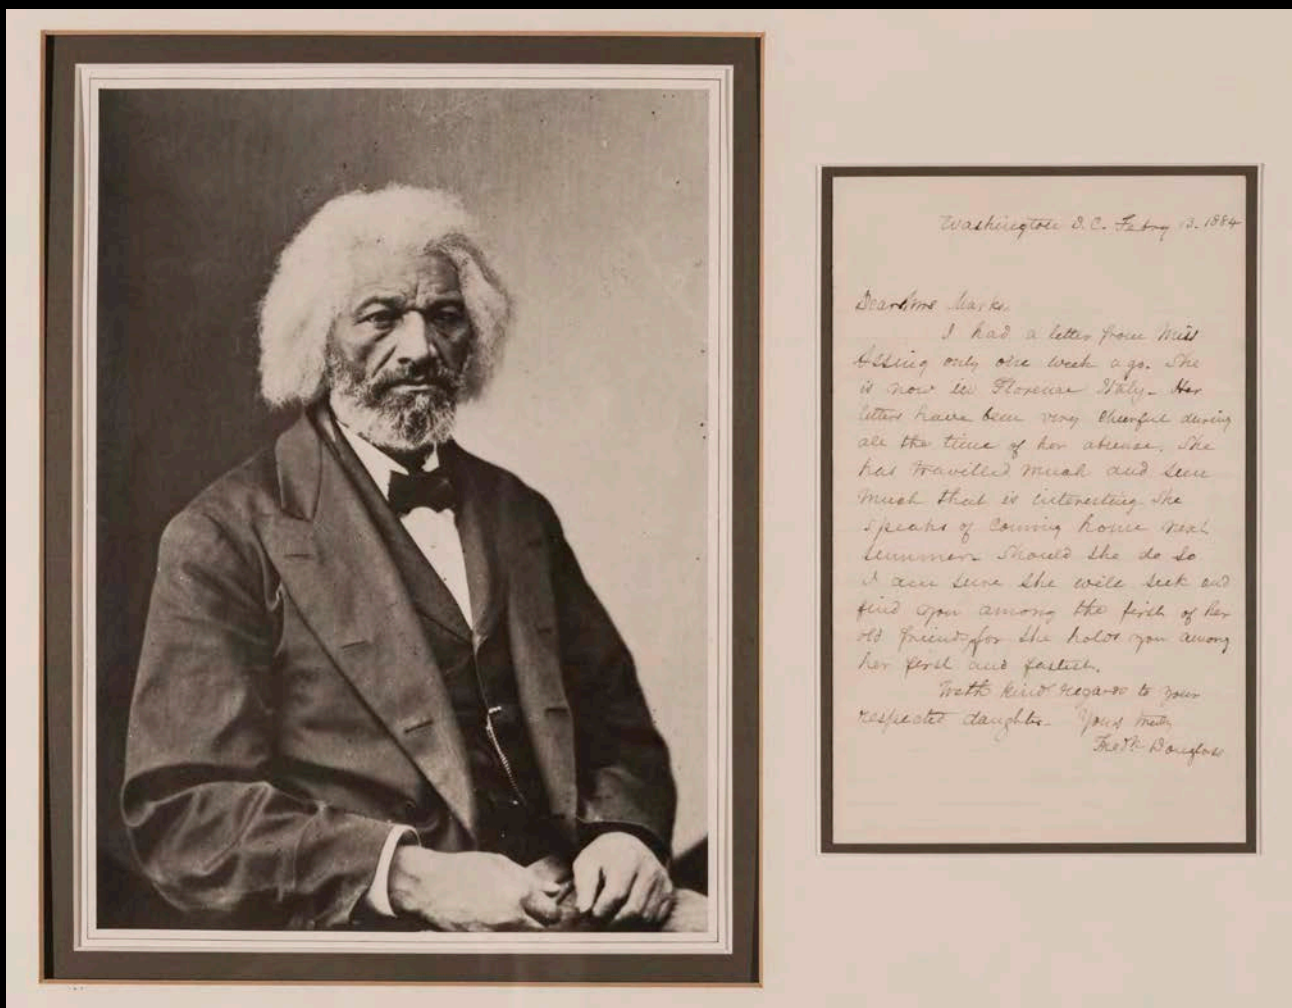 Washington D.C. Febry 13. 1884
Dear Mrs Marks.
I had a letter from Miss
Assing only one week ago. She
is now in Florence Italy - Her
letters have been very cheerful during
all the time of her absence. She
has travelled much and seen
much that is interesting She
speaks of coming home next
summer. Should she do so
I am sure she will seek and
find you among the first of her
old friends for she holds you among
her first and fastest.
With kind regards to your
respected daughter. Yours truly
Fredk Douglass